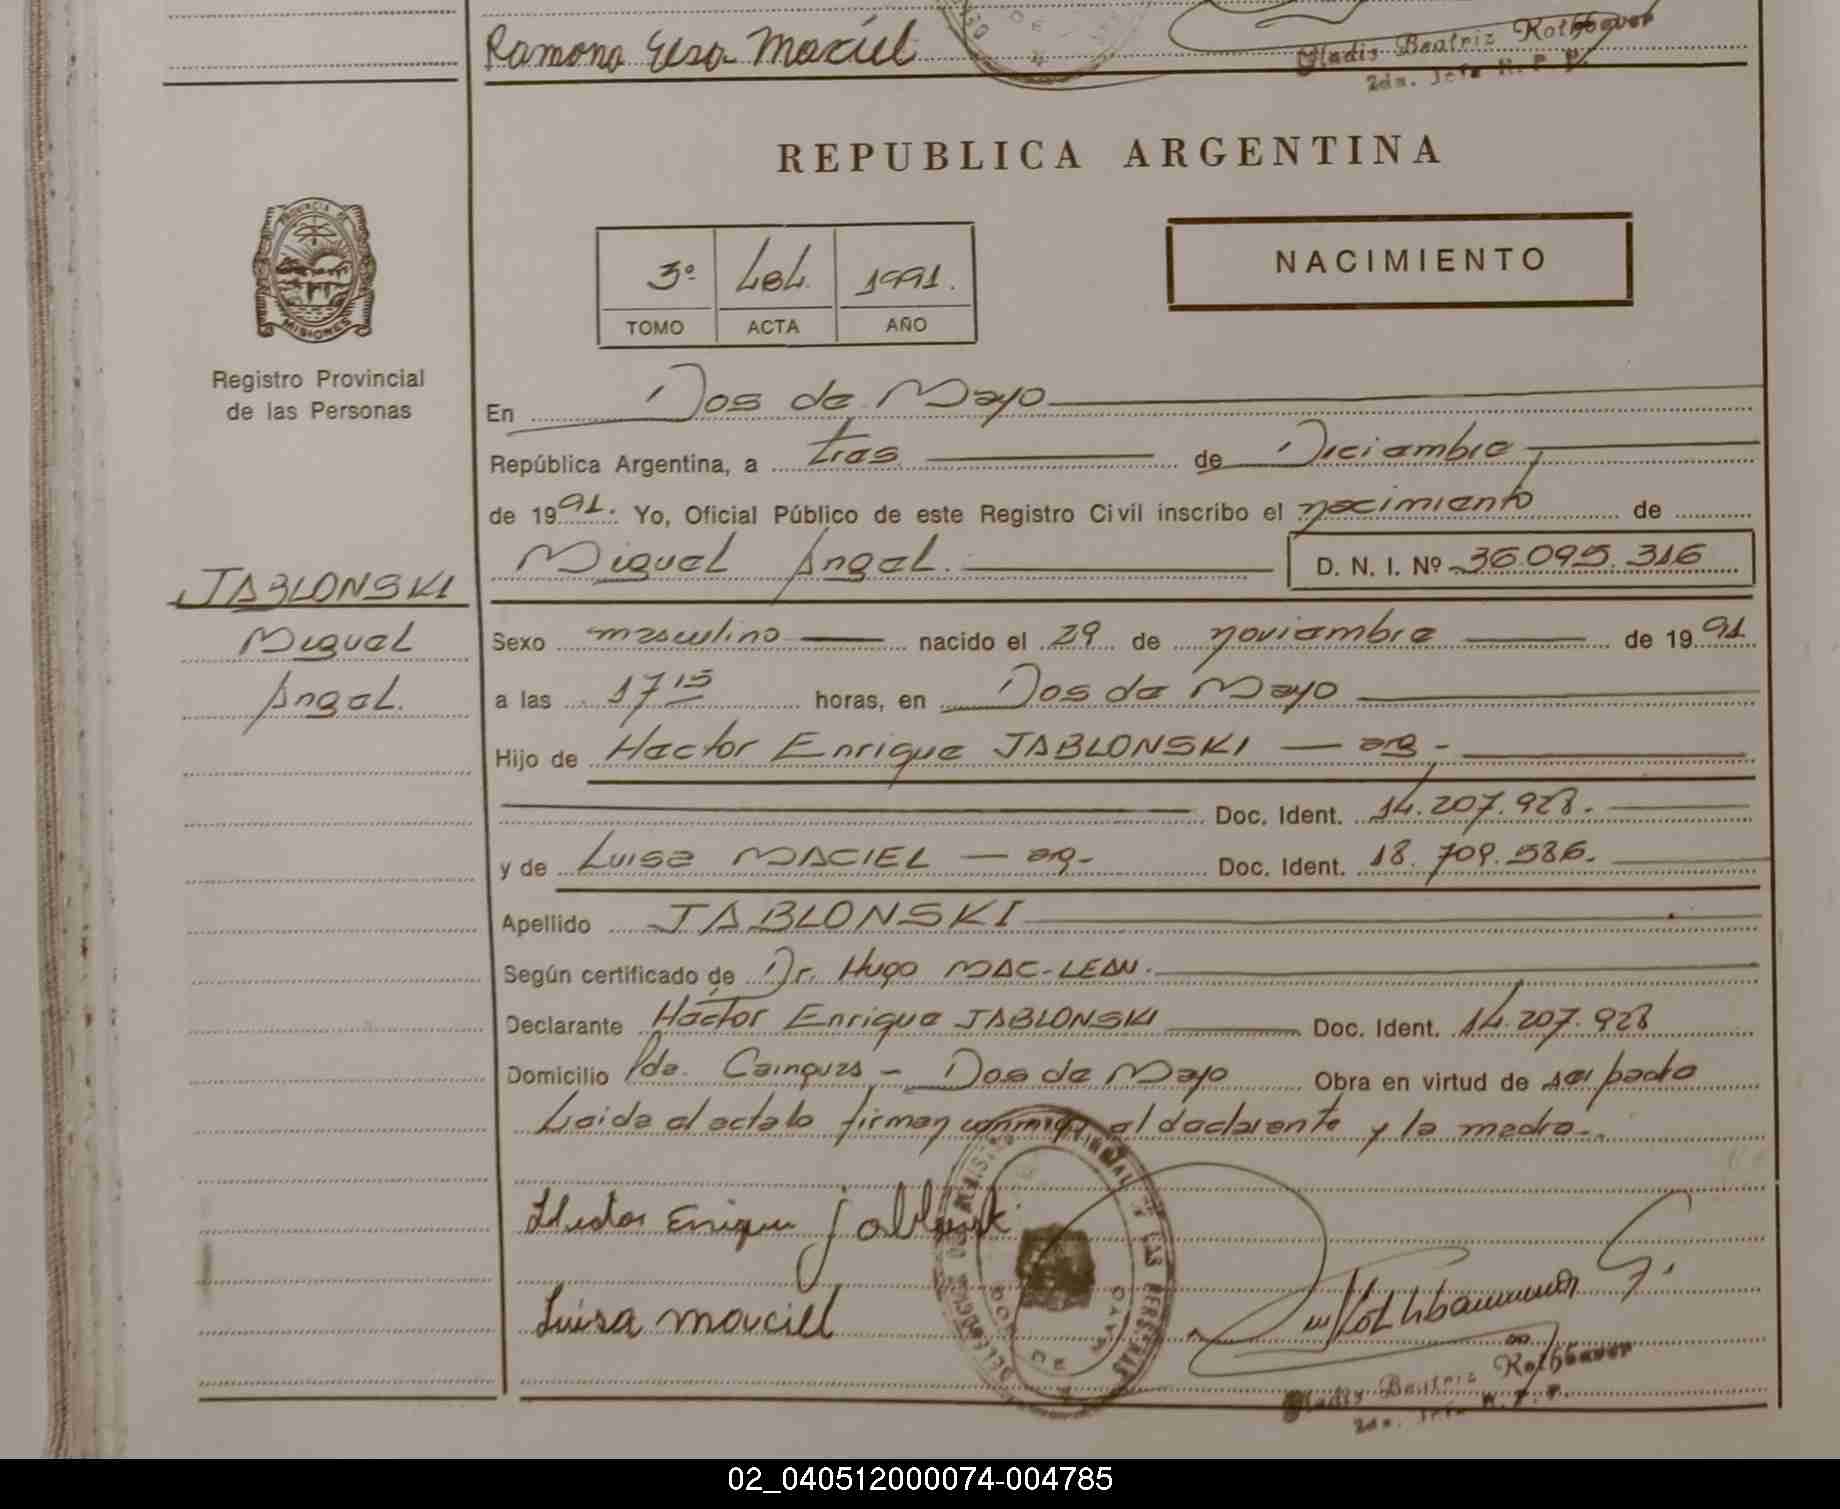 Ramona Elsa Maciel
Gladis Beatriz Rothbauer
2da. Jefa R. P. P.
REPUBLICA ARGENTINA
PROVINCIA DE
MISIONES
3º 484. 1991.
TOMO ACTA AÑO
NACIMIENTO
Registro Provincial
de las Personas
En Dos de Mayo
República Argentina, a tres de Diciembre
de 1991. Yo, Oficial Público de este Registro Civil inscribo el nacimiento de
Miguel Angel. D. N. I. Nº 36.095.316
JABLONSKI
Miguel
Angel.
Sexo masculino nacido el 29 de noviembre de 1991
a las 17 15 horas, en Dos de Mayo
Hijo de Hector Enrique JABLONSKI — arg -
Doc. Ident. 14.207.928.
y de Luisa MACIEL — arg - Doc. Ident. 18.709.586.
Apellido JABLONSKI
Según certificado de Dr. Hugo MAC-LEAN.
Declarante Héctor Enrique JABLONSKI Doc. Ident. 14.207.928
Domicilio Pda. Cainguas - Dos de Mayo Obra en virtud de ser padre
Leida el acta lo firman conmigo el declarante y la madre.
Hector Enrique Jablonski
Luisa Maciel
DOS DE MAYO
Rothbauer G.
Gladis Beatriz Rothbauer
2da. Jefa R. P. P.
02_040512000074-004785